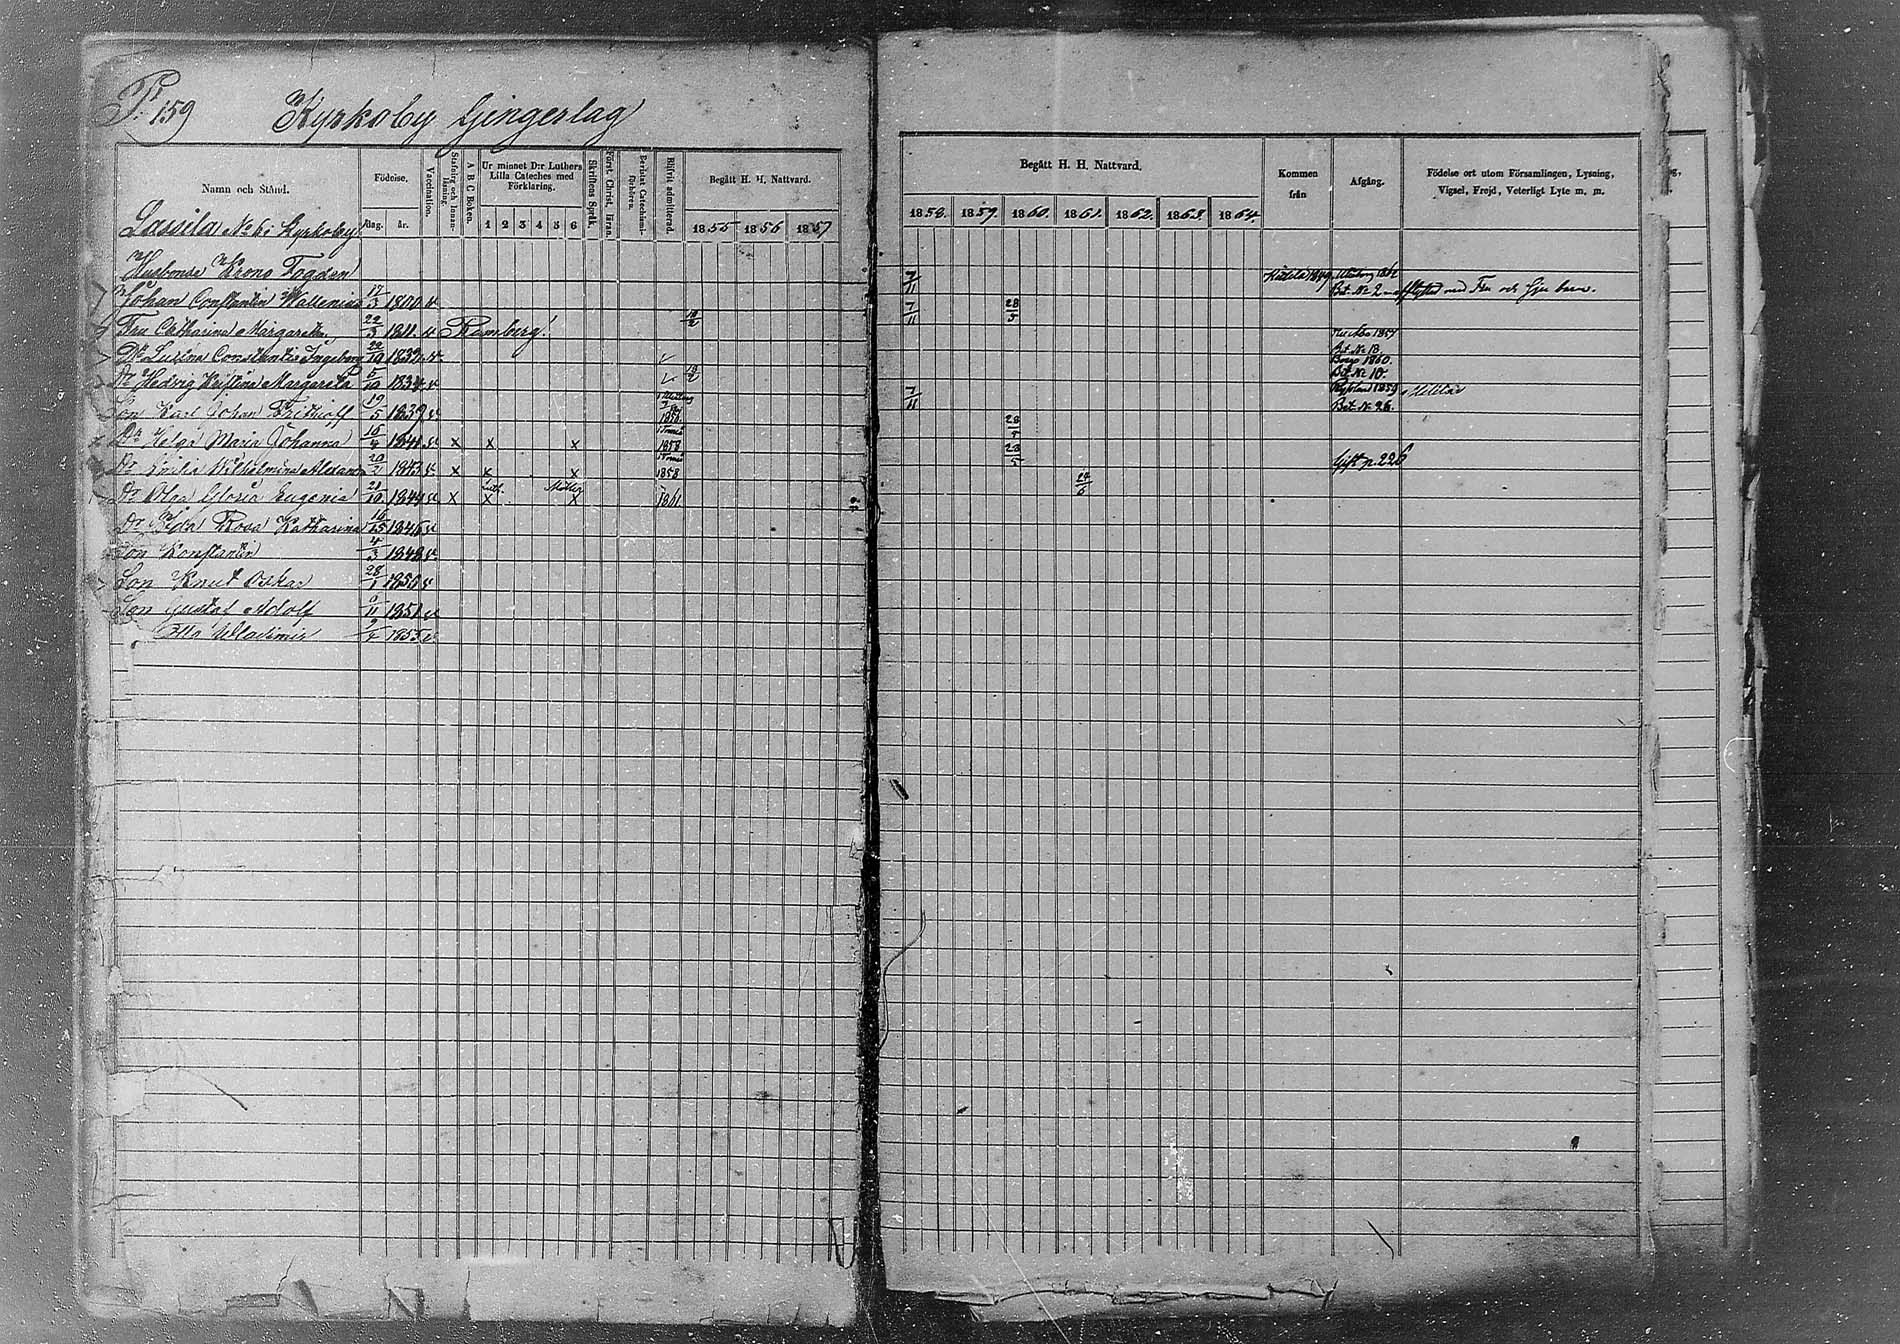 P. 159 Kyrkoby Gingerlag
Namn och Stånd.
Födelse.
Dag. år.
Vaccination.
Stafning och Innan-läsning.
A B C Boken.
Ur minnet D:r Luthers
Lilla Cateches med
Förklaring.
1 2 3 4 5 6
Skriftens Språk.
Först. Christ. läran.
Bevistat Catechismi-förhören.
Blifvit admitterad.
Begått H. H. Nattvard.
1855 1856 1857
Begått H. H. Nattvard.
1858. 1859. 1860. 1861. 1862. 1863. 1864.
Kommen
från
Afgång.
Födelse ort utom Församlingen, Lysning,
Vigsel, Frejd, Veterligt Lyte m. m.
Lassila No 6 i Kyrkoby
Husbonde Krono Fogden
Johan Constantin Wallenius 17/3 1800 v. 7/11 1849 Bet. No 2 afflyttad med Fru och Gju barn.
Fru Catharina Margaretha 22/3 1811 v. Ramberg! 18/2 7/11 28/5
Dr Lusina Constantia Ingeborg 22/10 1832 v. 1857 Bet No 13
Dr Hedvig Kristina Margareta 5/10 1834 v. 18/2 Borgo 1860. Bet. No 10.
Son Karl Johan Frithioff 19/5 1839 v. 1856 7/11 1859 Bet. No 26. Militär
Dr Helga Maria Johanna 15/4 1841 v. x x x 1858 28
Dr Emilia Wilhelmina 20/2 1843 v. x x x 1858 28/5 Gift p. 226
Dr Olga Gloria Eugenia 21/10 1844 v. x x x 1861 24/6
Dr Ida Rosa Katharina 16 1846 v.
Son Konstantin 4/3 1848 v.
Son Knut Oskar 28/1 1850 v.
Son Gustaf Adolf 11 1851 v.
Otto Wladimir 9/4 1855 v.